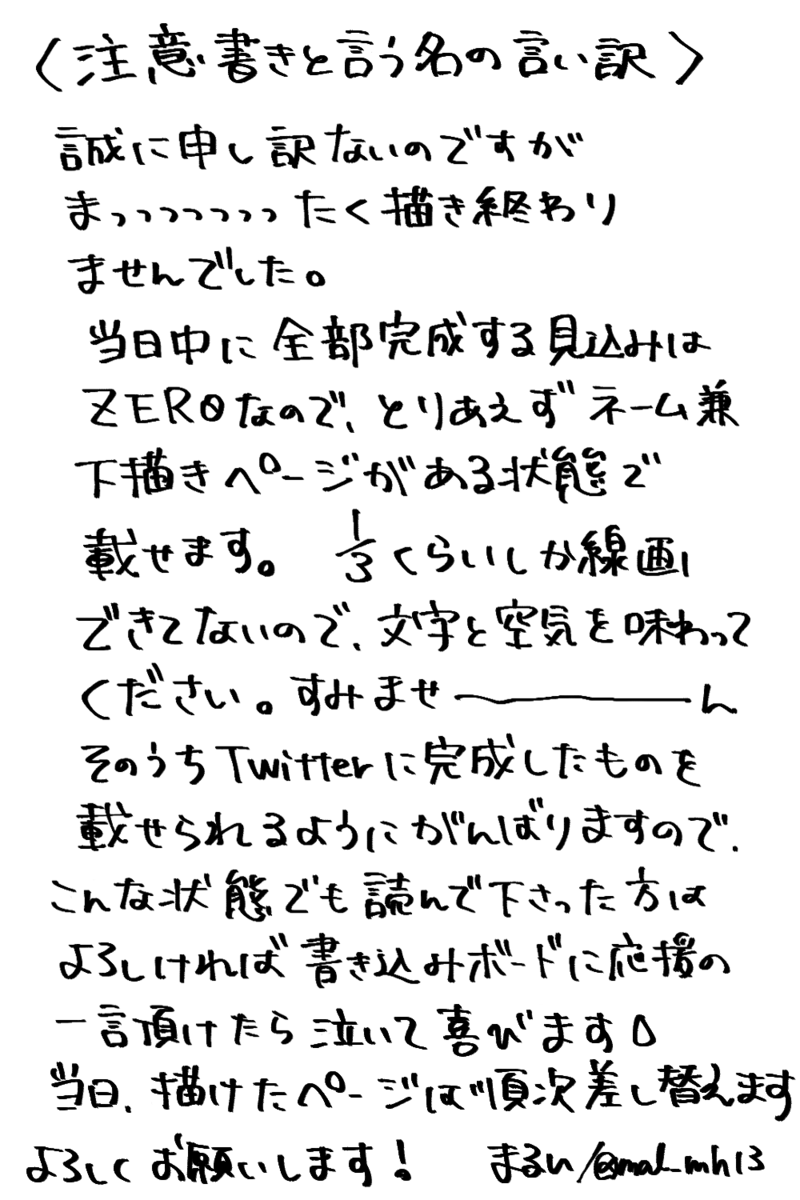 〈注意書きと言う名の言い訳〉
誠に申し訳ないのですが
まっっっっっっったく描き終わり
ませんでした。
当日中に全部完成する見込みは
ZEROなので、とりあえずネーム兼
下描きページがある状態で
載せます。 1/3くらいしか線画
できてないので、文字と空気を味わって
ください。すみませ―――ん
そのうちTwitterに完成したものを
載せられるようにがんばりますので、
こんな状態でも読んで下さった方は
よろしければ書き込みボードに応援の
一言頂けたら泣いて喜びます
当日、描けたページは順次差し替えます
よろしくお願いします! まるい/@mal_mh13